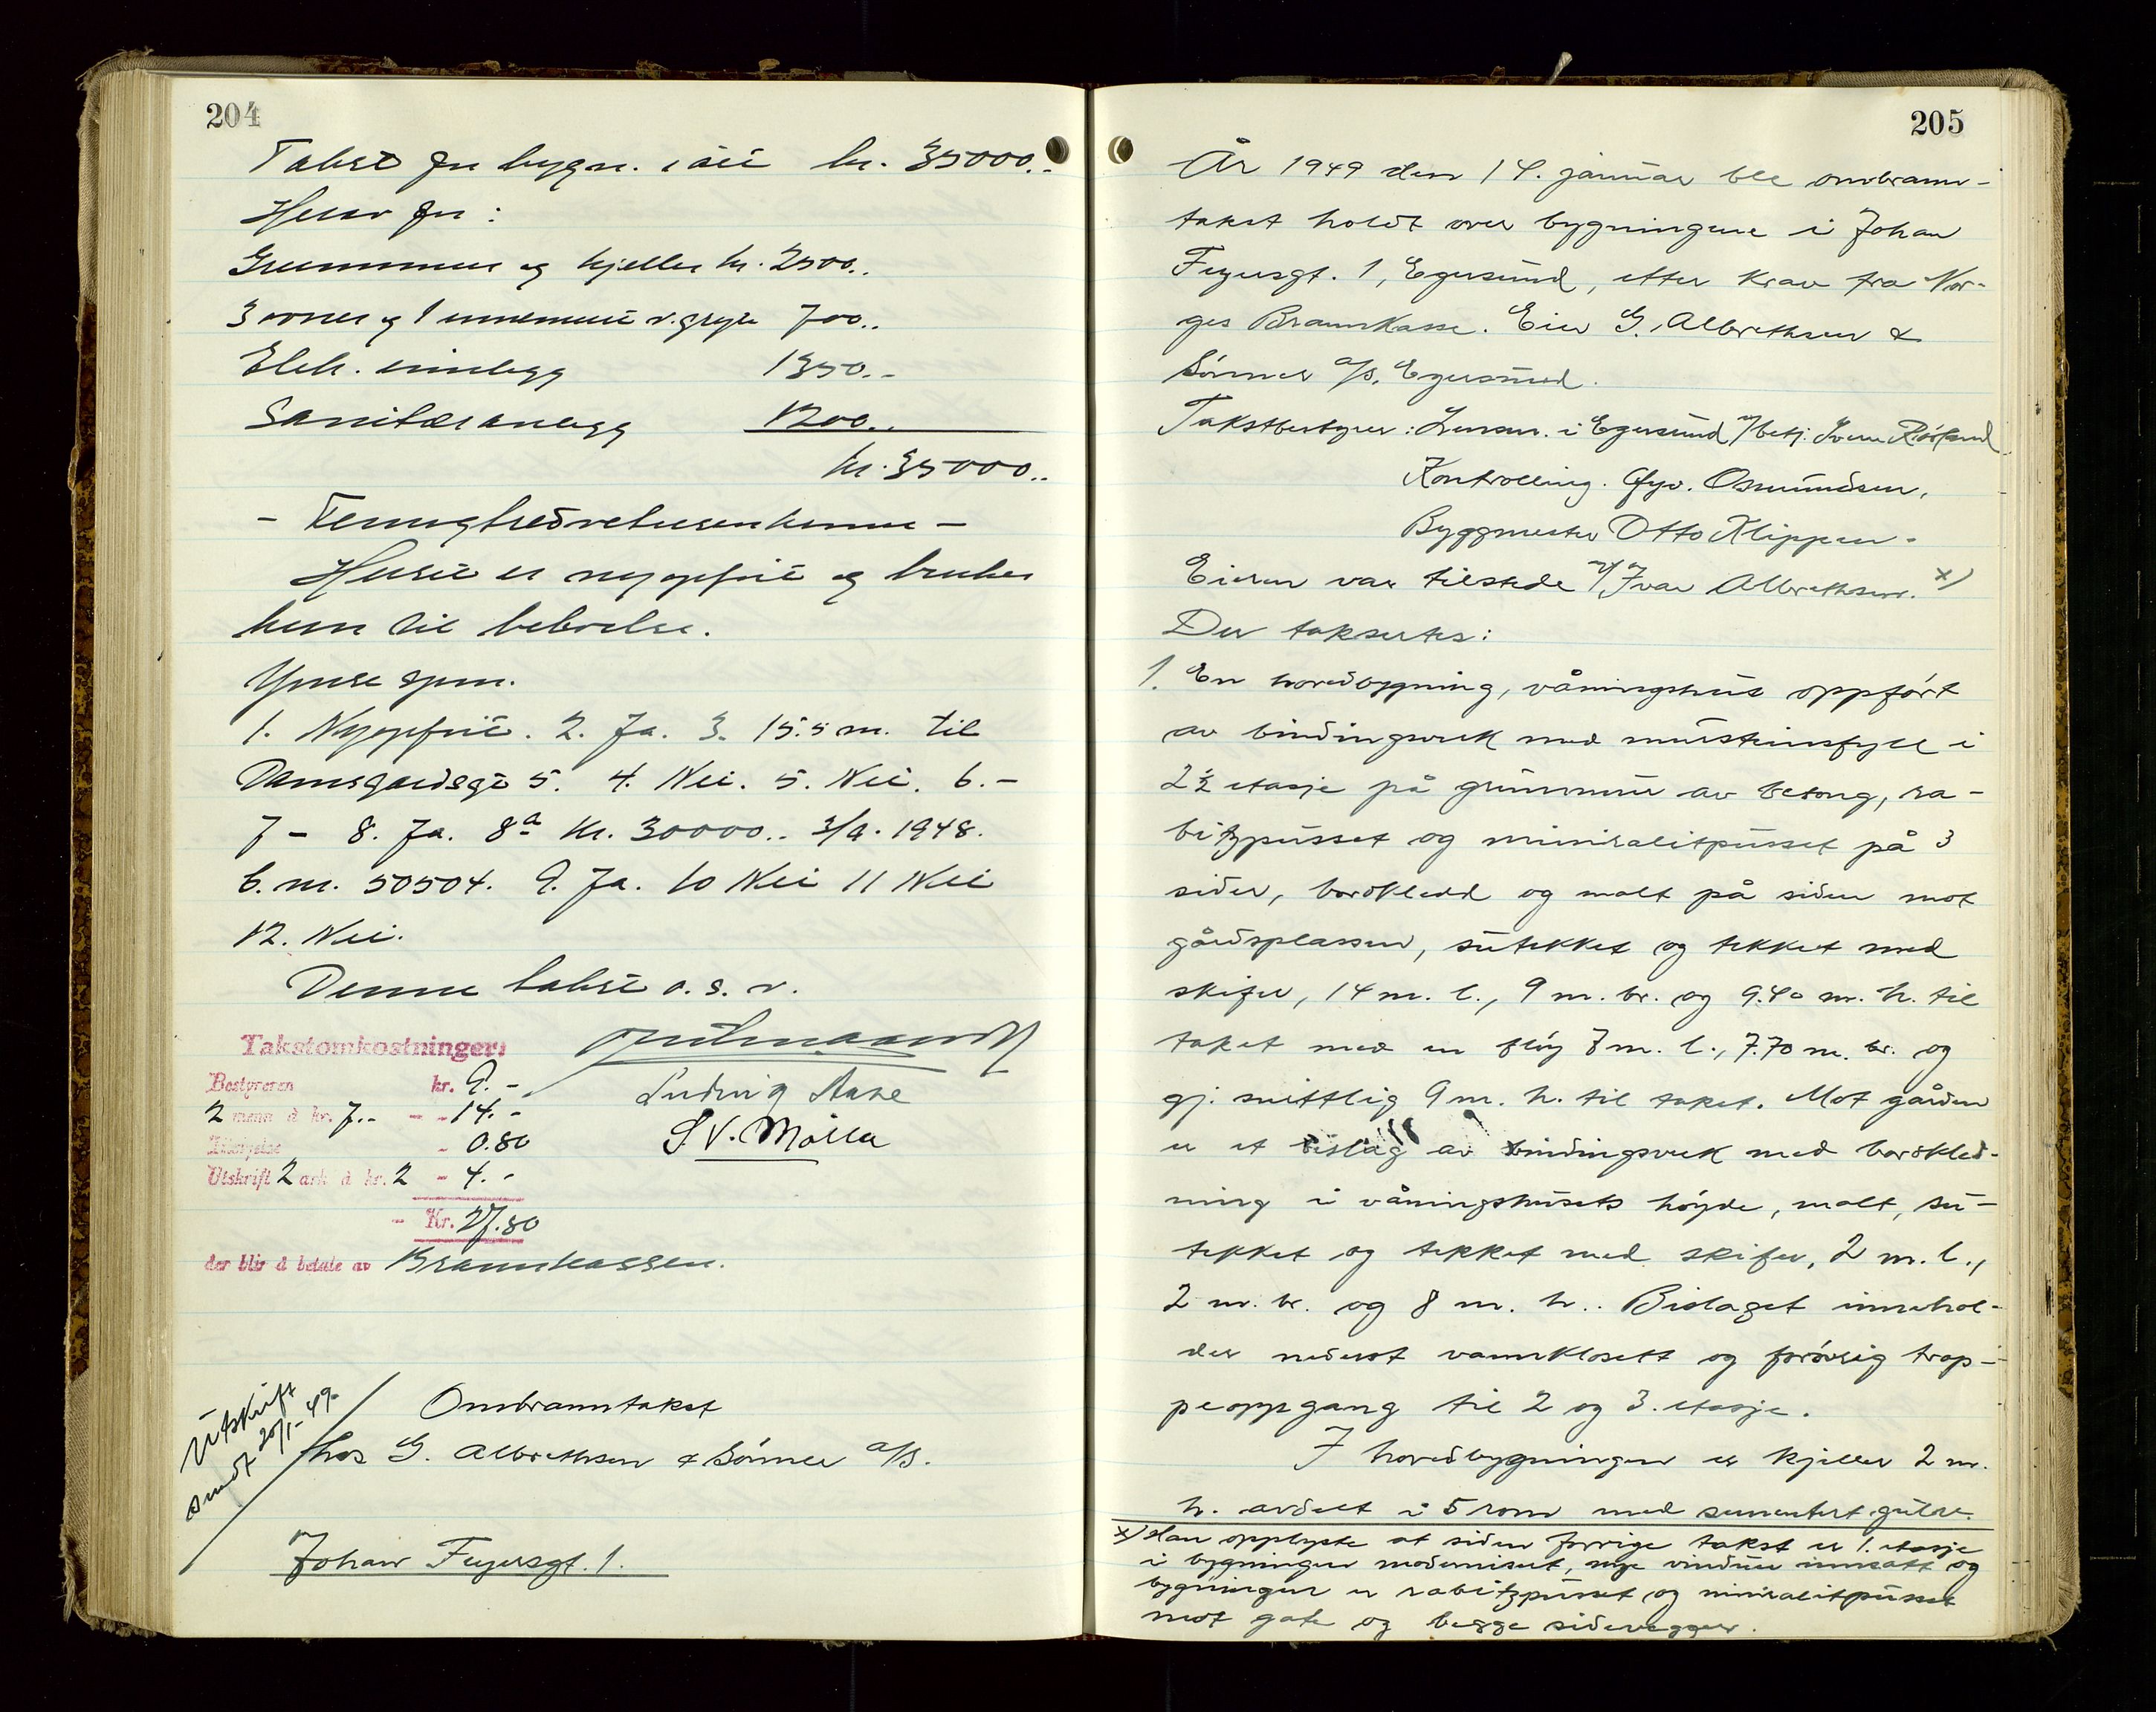 204
Takst for bygn. i alt kr. 35000..
Herav for:
Grunnmur og kjeller kr. 2500..
3 ovner og 1 innemuret v.gryte 700..
Elek. innlegg 1350.-
Sanitæranlegg 1200..
kr. 35000..
Huset er nyoppført og brukes
kun til beboelse.
Ymse spm.
1. Nyoppført. 2. Ja. 3. 15.5 m. til
Damsgårdsgt 5. 4. Nei. 5. Nei. 6.-
7 - 8. Ja. 8a Kr. 30000.. 3/9. 1948.
b.nr. 50504. 9. Ja. 10 Nei 11 Nei
12. Nei.
Denne takst o.s.v.
Takstomkostninger:
Bestyreren kr. 9.-
2 menn à kr. 7.- - - 14.-
- 0.80
Utskrift 2 ark à kr. 2 - 4.-
- Kr. 27.80
der blir å betale av Brannkassen.
Ludvig Aase
S. V. Mölla
Utskrift
sendt 20/1-49.
Ombranntakst
hos G. Albrethsen & Sønner a/s.
Johan Feyersgt. 1.
205
År 1949 den 14. januar ble ombrann-
takst holdt over bygningene i Johan
Feyersgt. 1, Egersund, etter krav fra Nor-
ges Brannkasse. Eier G. Albrethsen &
Sønner a/s, Egersund.
Takstbestyrer: Lensm. i Egersund v/betj. Svein Røsland
Kontrolling. Gyv. Osmundsen,
Byggmester Otto Klippen.
Eieren var tilstede v/ Ivar Albrethsen. x)
Der taksertes:
1. En hovedbygning, våningshus oppført
av bindingsverk med mursteinsfyll i
2½ etasje på grunnmur av betong, ra-
bitzpusset og mineralitpusset på 3
sider, bordkledd og malt på siden mot
gårdsplassen, sutekket og tekket med
skifer, 14 m. l., 9 m. br. og 9.40 m. h. til
taket med en fløy 8 m. l., 7.70 m. br. og
gj.snittlig 9 m. h. til taket. Mot gården
er et bislag av bindingsverk med bordkled-
ning i våningshusets høyde, malt, su-
tekket og tekket med skifer, 2 m. l.,
2 m. br. og 8 m. h.. Bislaget innehol-
der nederst vannklosett og forøvrig trap-
peoppgang til 2 og 3. etasje.
I hovedbygningen er kjeller 2 m.
h. avdelt i 5 rom med sementert gulv.
x) Han opplyste at siden forrige takst er 1. etasje
i bygningen modernisert, nye vinduer innsatt og
bygningen er rabitzpusset og mineralitpusset
mot gate og begge sidevegger.